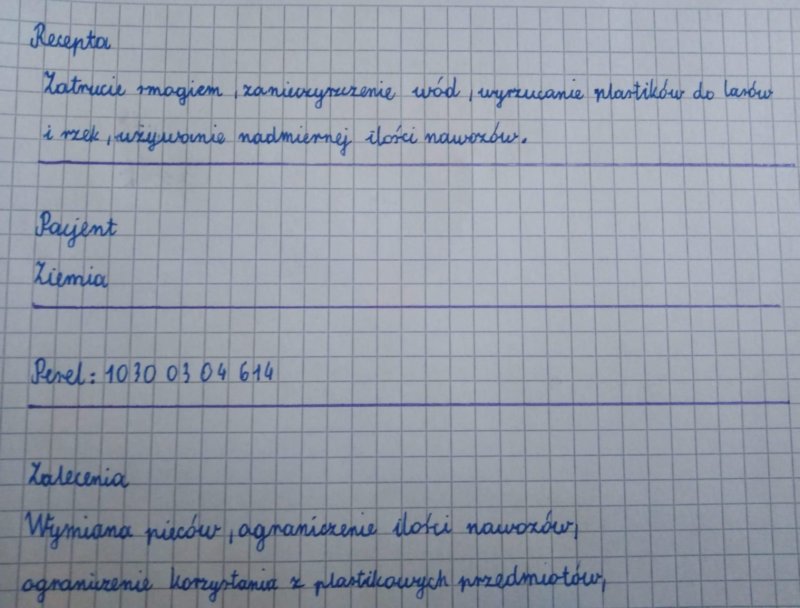 Recepta
Zatrucie smogiem, zanieczyszczenie wód, wyrzucanie plastików do lasów
i rzek, używanie nadmiernej ilości nawozów.
Pacjent
Ziemia
Pesel: 1030 03 04 614
Zalecenia
Wymiana pieców, ograniczenie ilości nawozów,
ograniczenie korzystania z plastikowych przedmiotów,